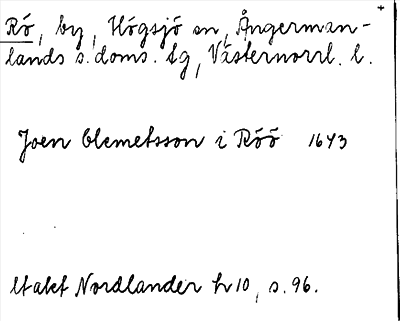 Rö, by, Högsjö sn, Ångerman-
lands s. doms. tg, Västernorrl. l.
Joen Clemetsson i Röö 1643
Utakt Nordlander h 10, s. 96.